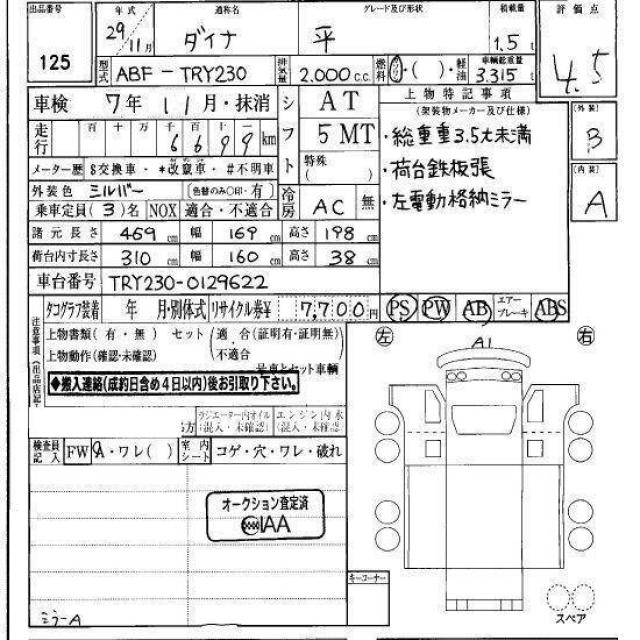 出品番号 年式 通称名 グレード及び形状 積載量 評価点
125 29年11月 ダイナ 平 1.5t 4.5
型式 ABF-TRY230 排気量 2.000c.c. 燃料 ガソリン・( )・軽油 車輌総重量 3.315t
車検 7年11月・抹消 シフト AT 上物特記事項 (外装) B
(架装物メーカー及び仕様)
走行 百 十 万 千 百 十 一 6699km 5MT ・総重量3.5t未満
メーター歴 $交換車・*改竄車・#不明車 特殊( ) ・荷台鉄板張 (内装) A
外装色 シルバー (色替のみ○印・有) ・左電動格納ミラー
乗車定員(3)名 NOX 適合・不適合 冷房 AC 無
諸元長さ 469cm 幅 169cm 高さ 198cm
荷台内寸長さ 310cm 幅 160cm 高さ 38cm
車台番号 TRY230-0129622
タコグラフ装着 年 月・別体式 リサイクル券¥ 7,700円 PS PW AB エアーブレーキ ABS
注意事項(出品店記
上物書類(有・無) セット 適合(証明有・証明無) 左 右
上物動作(確認・未確認) 不適合 A1
車とセット車輌
◆搬入連絡(成約日含め4日以内)後お引取り下さい。
ラジエーター内オイル エンジン内水
(混入・未確認) (混入・未確認)
検査員記入 FW A・ワレ( ) 室内シート コゲ・穴・ワレ・破れ
オークション査定済
IAA
キーコーナー
ミラーA スペア